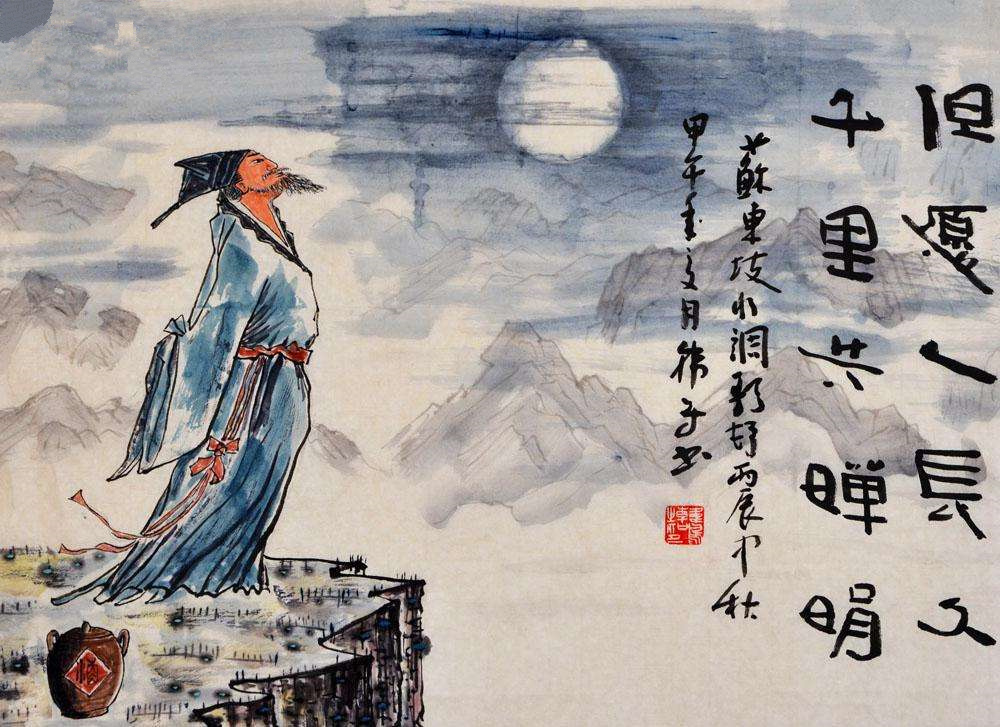 但愿人長久
千里共嬋娟
蘇東坡水调歌頭丙辰中秋
甲午年月子书
酒